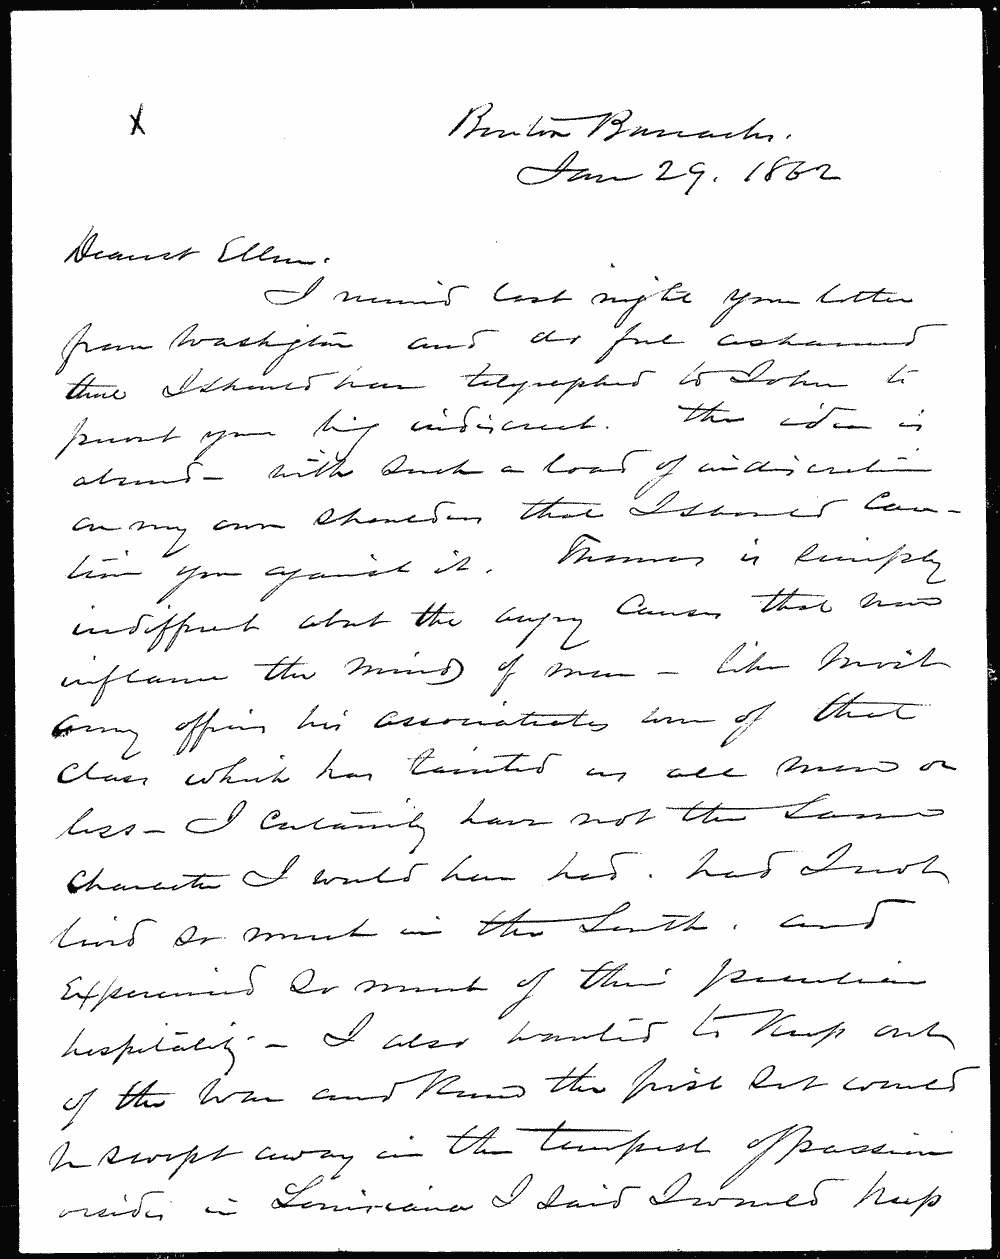 X
Benton Barracks.
Jan 29. 1862
Dearest Ellen.
I received last night your letter
from Washington and do feel ashamed
that I should have telegraphed to John to
prevent your being indiscreet. The idea is
absurd - with such a load of indiscretion
on my own shoulders that I should cau-
tion you against it. Thomas is simply
indifferent about the angry causes that now
inflame the minds of men - like most
army officers his associates were of that
class which has tainted us all more or
less - I certainly have not the same
character I would have had. had I not
lived so much in the South. and
experienced so much of their peculiar
hospitality - I also wanted to keep out
of the war and knew the first set would
be swept away in the tempest of passion
besides in Louisiana I said I would keep